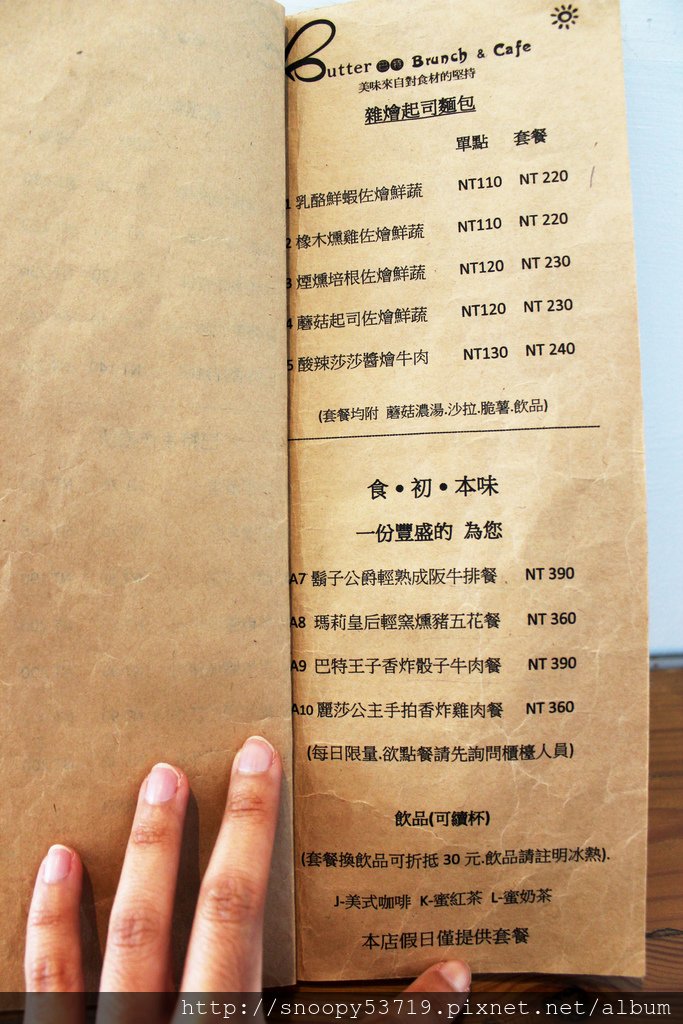 Butter 巴特 Brunch & Cafe
美味來自對食材的堅持
雜燴起司麵包
單點 套餐
1 乳酪鮮蝦佐燴鮮蔬 NT110 NT 220
2 橡木燻雞佐燴鮮蔬 NT110 NT 220
3 煙燻培根佐燴鮮蔬 NT120 NT 230
4 蘑菇起司佐燴鮮蔬 NT120 NT 230
5 酸辣莎莎醬燴牛肉 NT130 NT 240
(套餐均附 蘑菇濃湯.沙拉.脆薯.飲品)
食•初•本味
一份豐盛的 為您
A7 鬍子公爵輕熟成阪牛排餐 NT 390
A8 瑪莉皇后輕窯燻豬五花餐 NT 360
A9 巴特王子香炸骰子牛肉餐 NT 390
A10 麗莎公主手拍香炸雞肉餐 NT 360
(每日限量.欲點餐請先詢問櫃檯人員)
飲品(可續杯)
(套餐換飲品可折抵 30 元.飲品請註明冰熱).
J-美式咖啡 K-蜜紅茶 L-蜜奶茶
本店假日僅提供套餐
http://snoopy53719.pixnet.net/album